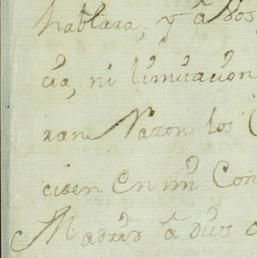 hablara, y â dos
cia, ni limitacion
ran Razon los
cisen en mi Con
Madrid â dies